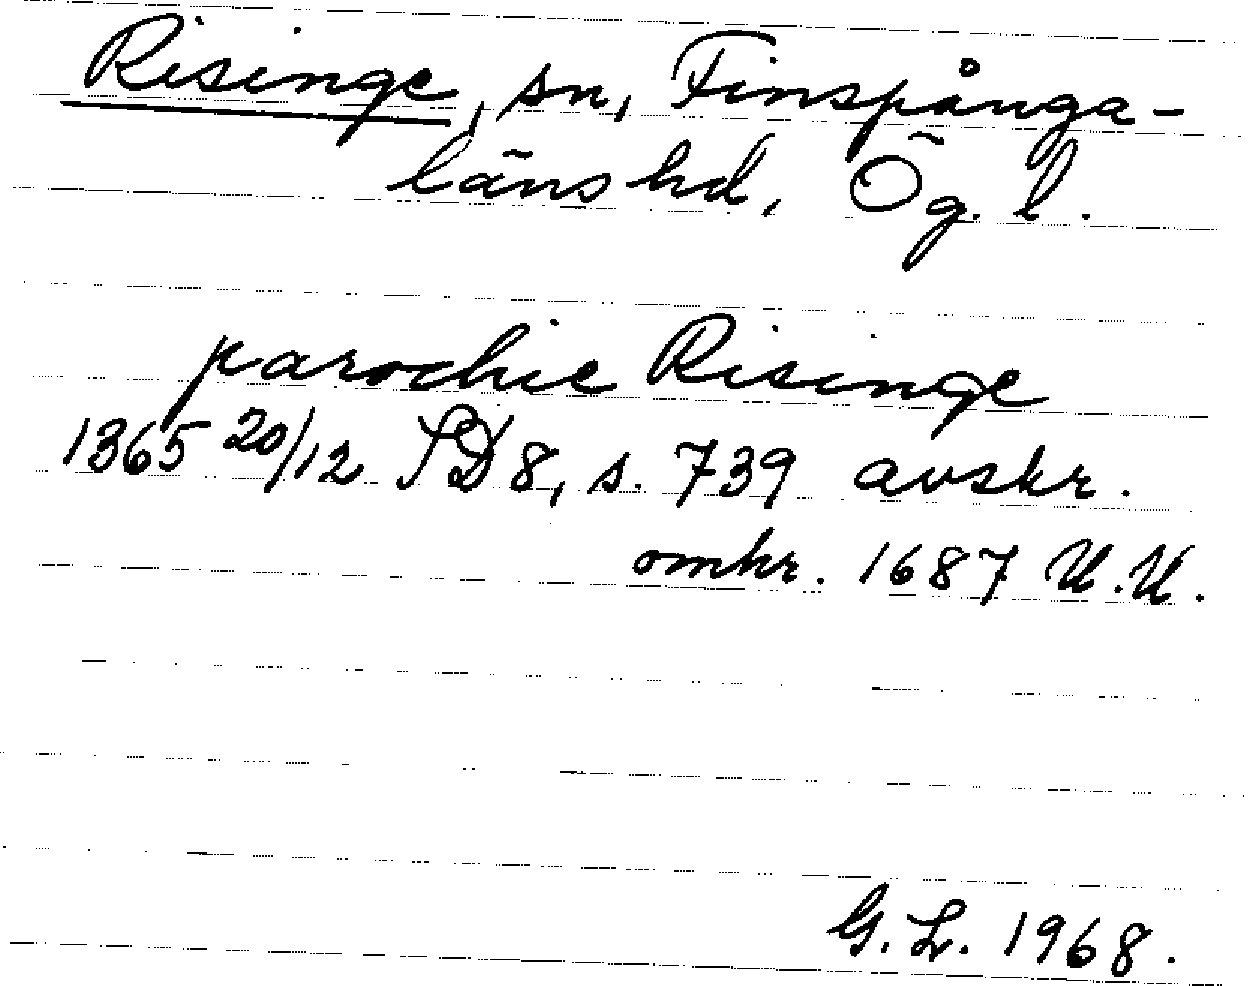 Risinge, sn, Finspånga-
läns hd, Ög. l.
parochie Risinge
1365 20/12 SD 8, s. 739 avskr.
omkr. 1687 U.U.
G.L. 1968.